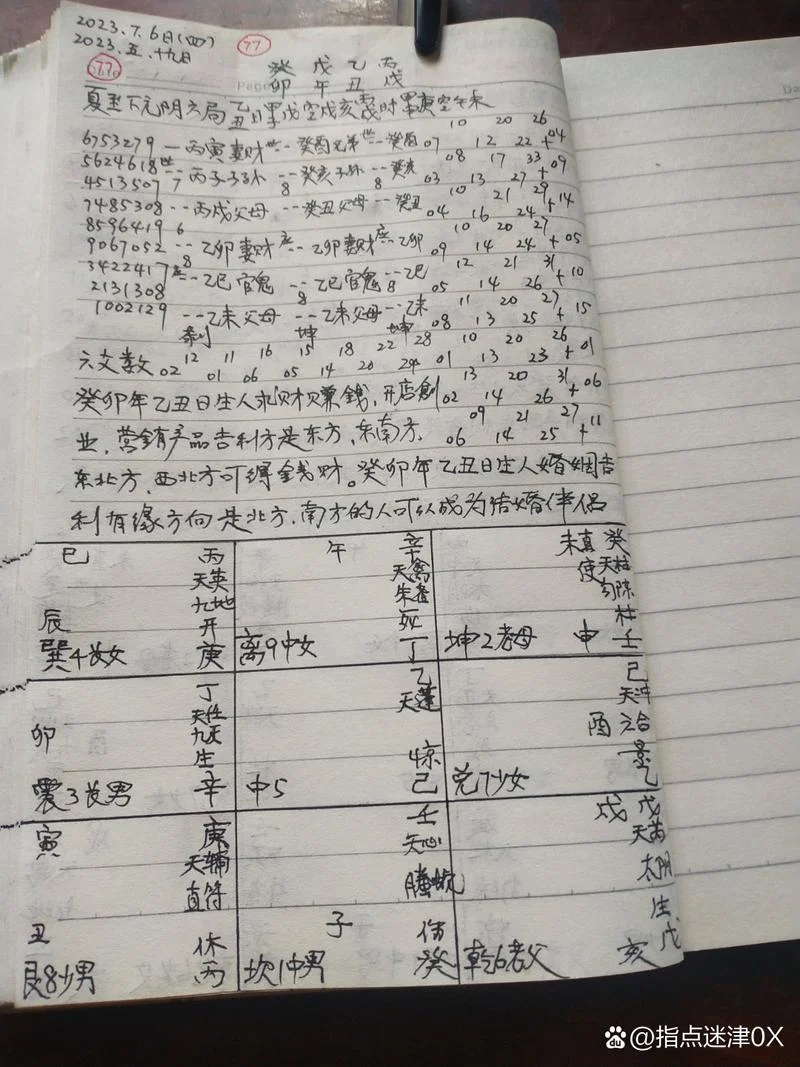 2023.7.6日(四) 77
2023.五.十九日
77 癸 戊 乙 丙
卯 午 丑 戌
夏至下元阴六局 乙丑日 戊空戌亥 时 庚空午未
10 20 26
6753279 一丙寅妻财世 -- 癸酉兄弟世 -- 癸酉 07 12 22 +04
5624618世 08 17 33
4513507 7 -- 丙子子孙 -- 8 癸亥子孙 8 -- 癸亥 03 13 27 +09
10 21 29
7485308 -- 丙戌父母 -- 癸丑父母 -- 癸丑 04 16 24 +14
8596419 6 10 20 27
9067052 -- 8 乙卯妻财应 -- 乙卯妻财应 -- 乙卯 09 14 24 +05
3422417应 12 21 31
2131308 -- 乙巳官鬼 -- 8 乙巳官鬼 -- 8 乙巳 05 14 26 +10
11 20 27
1002129 -- 乙未父母 -- 乙未父母 -- 乙未 08 13 25 +15
剥 坤 坤
12 11 16 15 18 22 28 10 20 26
六爻数 02 01 06 05 14 20 24 01 13 23 +01
13 20 31
癸卯年乙丑日生人求财赚钱,开店创 02 14 26 +06
09 21 27
业,营销产品吉利方是东方,东南方, 06 14 25 +11
东北方,西北方可得钱财。癸卯年乙丑日生人婚姻吉
利有缘方向是北方,南方的人可以成为结婚伴侣
巳 丙 午 辛 未 癸
天英 天禽 天柱
九地 朱雀 使 勾陈
辰 开 死 杜
巽4长女 庚 离9中女 丁 坤2老母 申 壬
丁 乙 己
天任 天蓬 天冲
卯 九天 酉 六合
生 惊 景
震3长男 辛 中5 己 兑7少女 乙
寅 庚 壬 戌 戊
天辅 天心 天芮
直符 螣蛇 太阴
丑 休 子 伤 生
艮8少男 丙 坎1中男 癸 乾6老父 亥 戊
@指点迷津0X